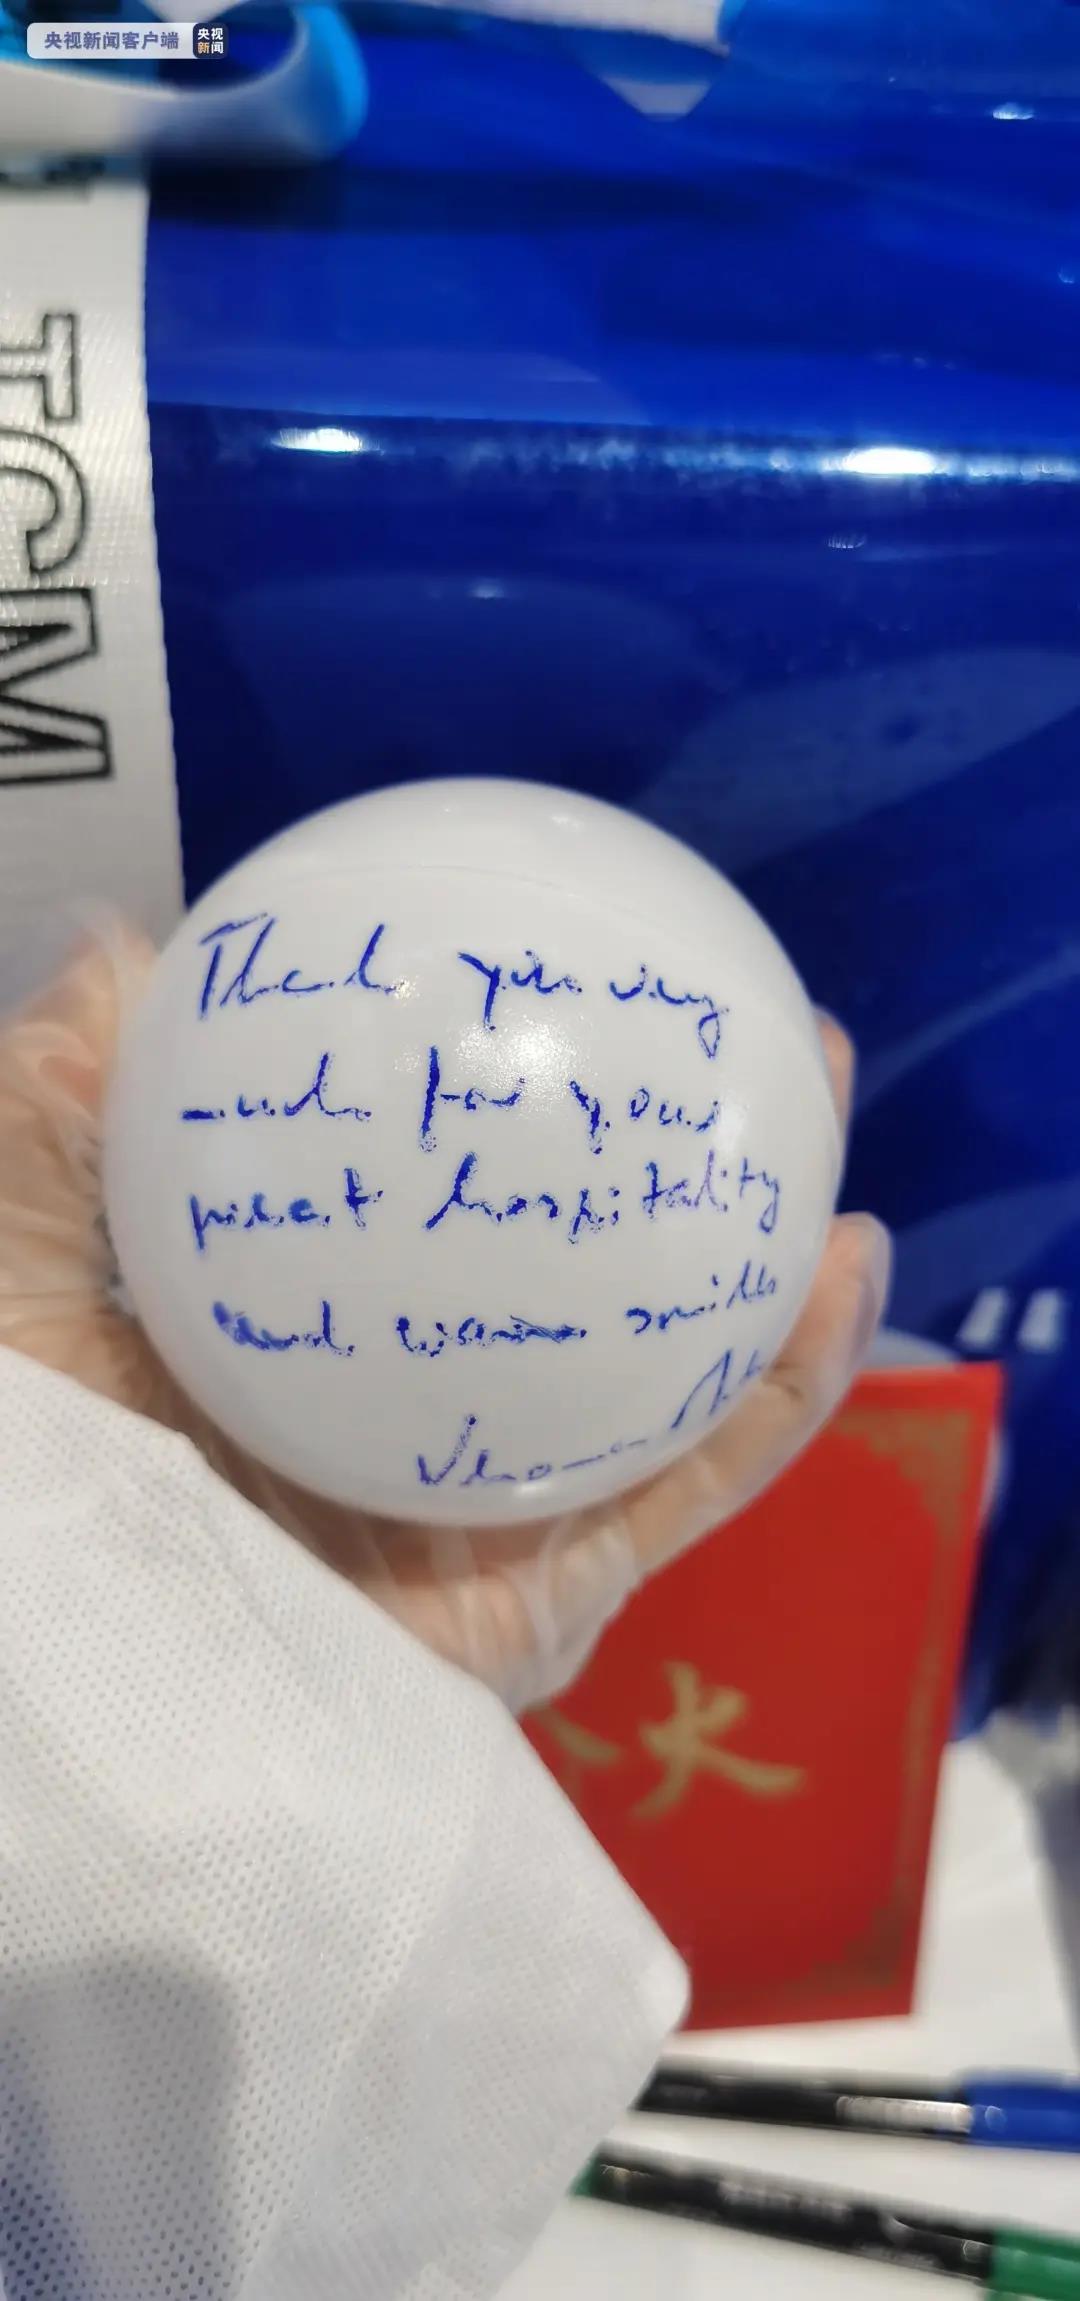 央视新闻客户端
央视
新闻
TCM
Thank you very
much for your
great hospitality
and warm smile
火